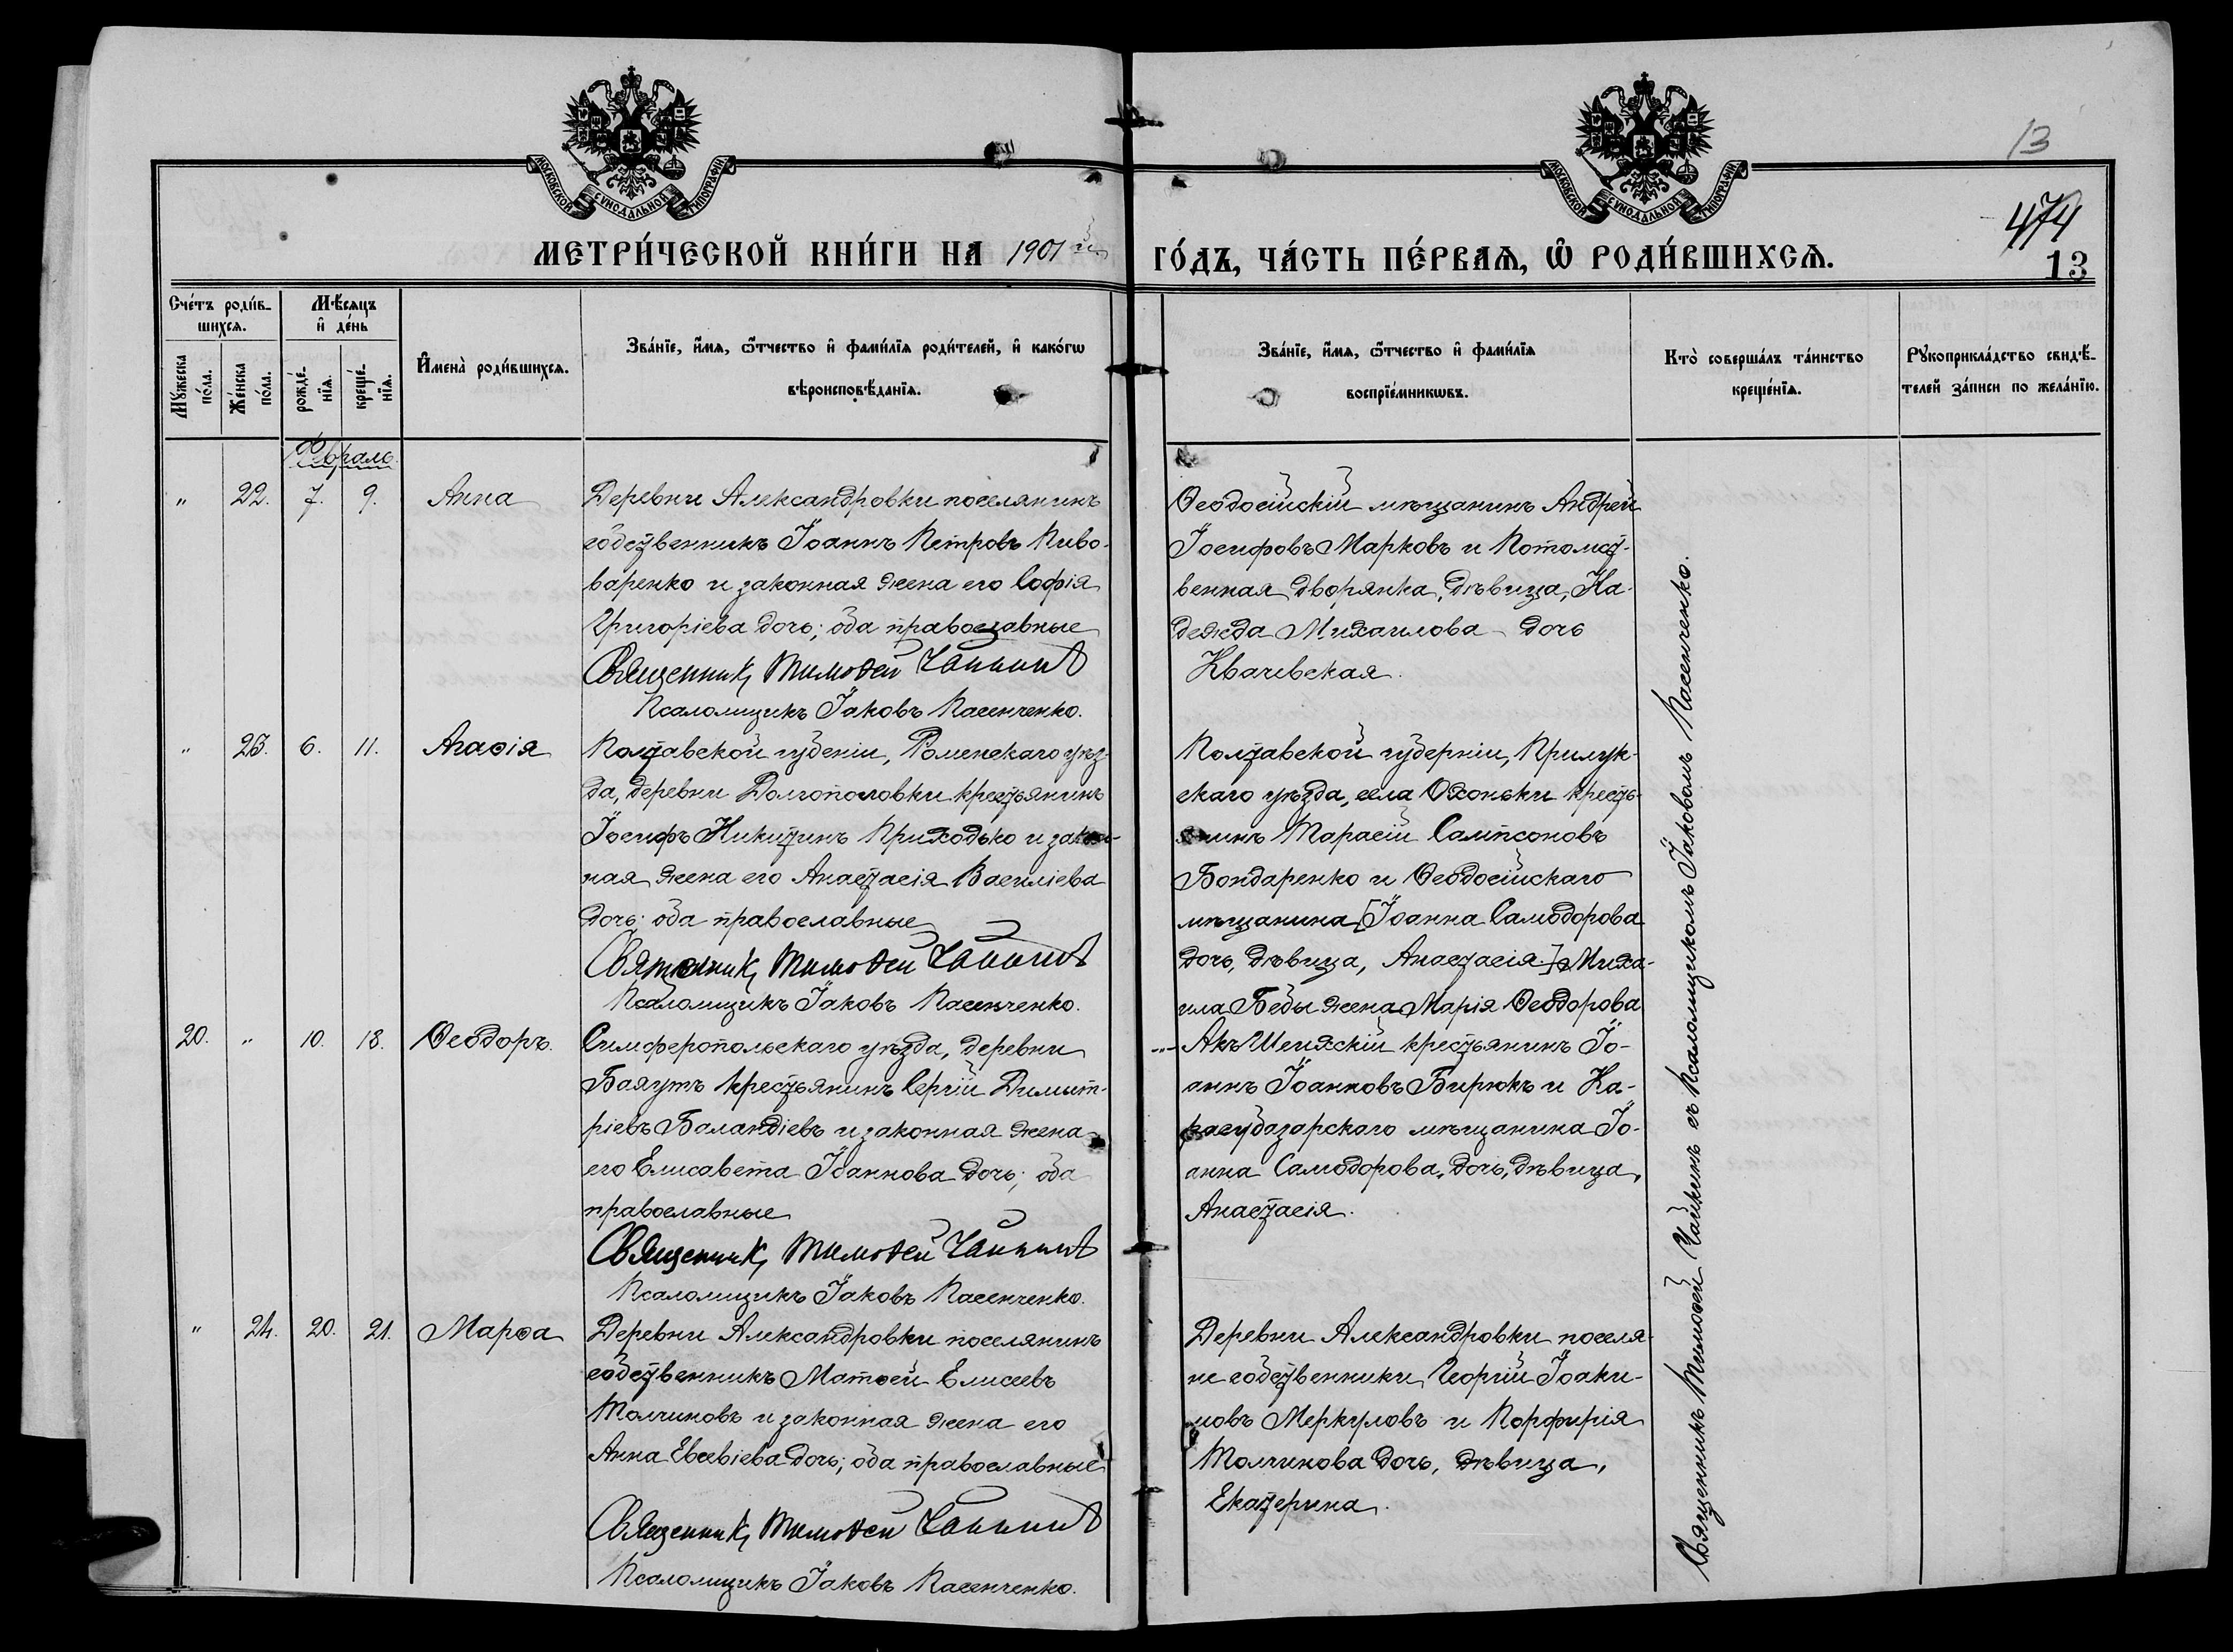 13
474
13
МОСКОВСКОЙ СѴНОДАЛЬНОЙ ТИПОГРАФІИ
МОСКОВСКОЙ СѴНОДАЛЬНОЙ ТИПОГРАФІИ
МЕТРИ́ЧЕСКОЙ КНИ́ГИ НА 1901 й ГО́ДЪ, ЧА́СТЬ ПЕ́РВАѦ, Ѽ РОДИ́ВШИХСѦ.
Сче́тъ роди́в-
шихсѧ.
Мѣ́сяцъ
и҆ де́нь
Мꙋ́жеска
по́ла.
Же́нска
по́ла.
рожде́-
нїѧ.
креще́-
нїѧ.
И҆мена̀ роди́вшихсѧ.
Зва́нїе, и҆́мѧ, ѻ҆́тчество и҆ фами́лїѧ роди́телей, и҆ како́гѡ
вѣроисповѣ́данїѧ.
Зва́нїе, и҆́мѧ, ѻ҆́тчество и҆ фами́лїѧ
воспрїе́мникѡвъ.
Кто̀ соверша́лъ та́инство
креще́нїѧ.
Рꙋкоприкла́дство свидѣ́-
телей за́писи по жела́нїю.
Февраль.
" 22. 7. 9. Анна
Деревни Александровки поселянинъ
собственникъ Іоаннъ Петровъ Пиво-
варенко и законная жена его Софія
Григоріева дочь; оба православные
Священникъ Тимоѳей Чайкинъ
Псаломщикъ Іаковъ Пасенченко.
Ѳеодосійскій мѣщанинъ Андрей
Іосифовъ Марковъ и Потомст-
венная дворянка, дѣвица, На-
дежда Михаилова дочь
Квачевская.
" 23. 6. 11. Агаѳія
Полтавской губеніи, Роменскаго уѣз-
да, деревни Долгополовки крестьянинъ
Іосифъ Никитинъ Приходько и закон-
ная жена его Анастасія Василіева
дочь; оба православные
Священникъ Тимоѳей Чайкинъ
Псаломщикъ Іаковъ Пасенченко.
Полтавской губерніи, Прилук-
скаго уѣзда, села Охоньки кресть-
янинъ Тарасій Сампсоновъ
Бондаренко и Ѳеодосійскаго
мѣщанина [Іоанна Самодорова
дочь, дѣвица, Анастасія.] Миха-
ила Беды жена Марія Ѳеодорова
20. " 10. 18. Ѳеодоръ.
Симферопольскаго уѣзда, деревни
Баяутъ крестьянинъ Сергій Димит-
ріевъ Баландіевъ и законная жена
его Елисавета Іоаннова дочь; оба
православные
Священникъ Тимоѳей Чайкинъ
Псаломщикъ Іаковъ Пасенченко.
Акъ Шеихскій крестьянинъ Іо-
аннъ Іоанновъ Бирюкъ и Ка-
расубазарскаго мѣщанина Іо-
анна Самодорова, дочь, дѣвица,
Анастасія.
" 24. 20. 21. Марѳа
Деревни Александровки поселянинъ
собственникъ Матѳей Елисеевъ
Толчиновъ и законная жена его
Анна Евсевіева дочь; оба православные
Священникъ Тимоѳей Чайкинъ
Псаломщикъ Іаковъ Пасенченко.
Деревни Александровки поселя-
не собственники, Георгій Іоаки-
мовъ Меркуловъ и Порфирія
Толчинова дочь, дѣвица,
Екатерина.
Священникъ Тимоѳей Чайкинъ съ Псаломщикомъ Іаковомъ Пасенченко.